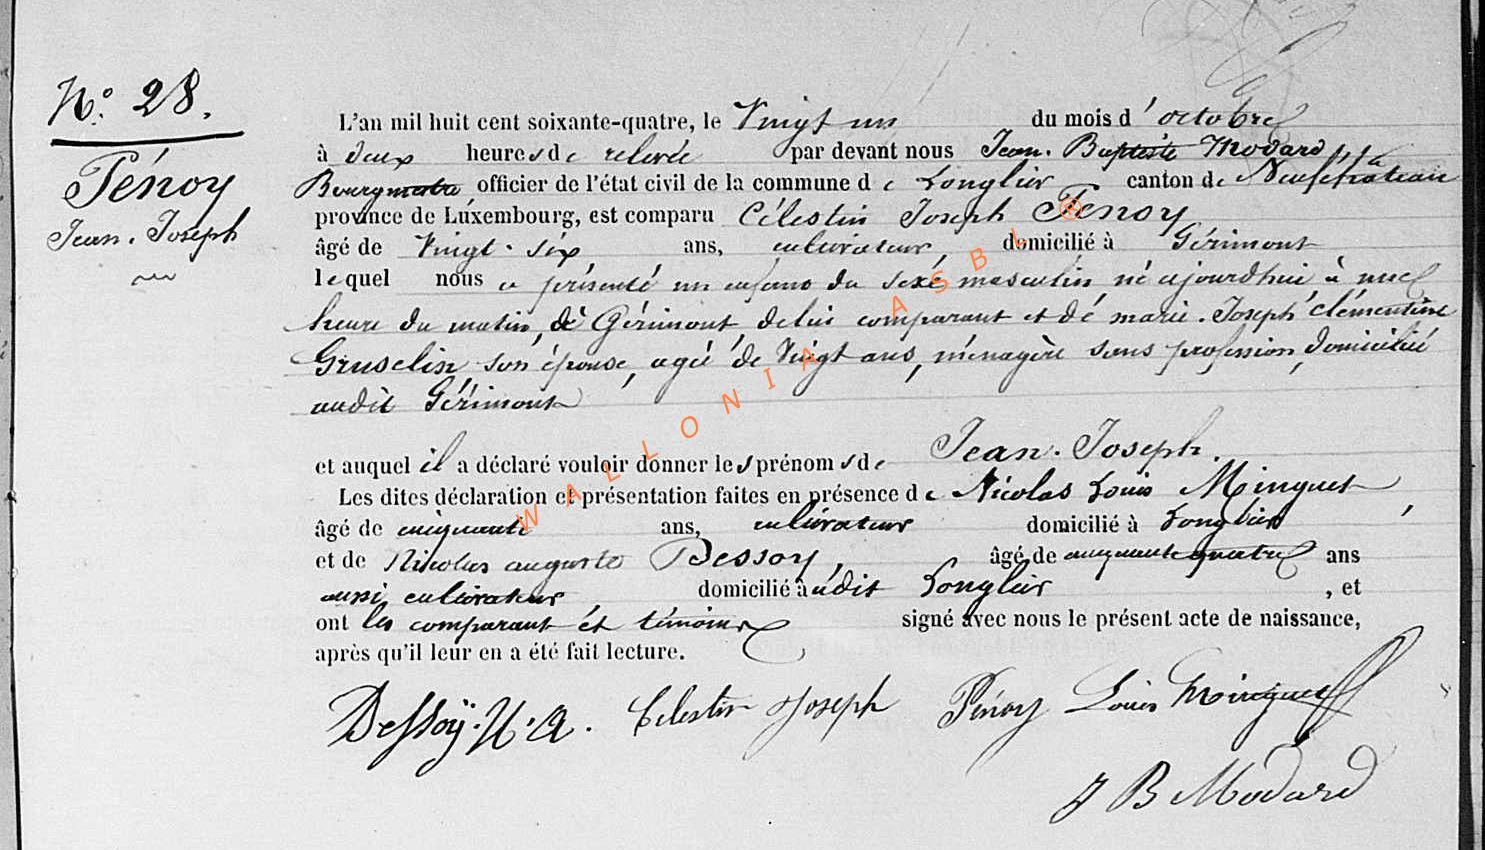 N.° 28.
Pénoy
Jean-Joseph
L'an mil huit cent soixante-quatre, le Vingt un du mois d'octobre
à deux heures de relevée par devant nous Jean-Baptiste Modard,
Bourgmestre officier de l'état civil de la commune de Longlier canton de Neufchateau
province de Luxembourg, est comparu Célestin Joseph Penoy
âgé de Vingt-six ans, cultivateur, domicilié à Gérimont
lequel nous a présenté un enfant du sexe masculin né ajourdhui à une
heure du matin, à Gérimont, de lui comparant et de marie-Joseph clémentine
Gruselin son épouse, agée de Vingt ans, ménagère sans profession, domiciliée
audit Gérimont
et auquel il a déclaré vouloir donner les prénoms de Jean-Joseph.
Les dites déclaration et présentation faites en présence de Nicolas Louis Minguet,
âgé de cinquante ans, cultivateur domicilié à Longlier
et de Nicolas auguste Dessoy, âgé de cinquante quatre ans
aussi cultivateur domicilié audit Longlier, et
ont les comparant et témoins signé avec nous le présent acte de naissance,
après qu'il leur en a été fait lecture.
Dessoÿ. N. A. Celestin Joseph Pénoy Louis Minguet
J B Modard
WALLONIA ASBL ®